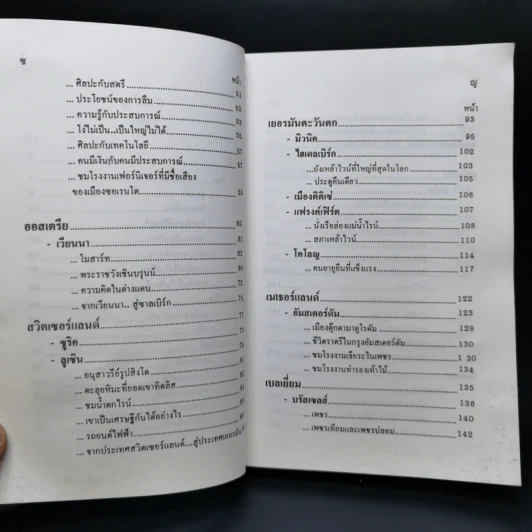 ซ
หน้า
... ศิลปะกับสตรี 51
... ประโยชน์ของการลืม 52
... ความรู้กับประสบการณ์ 55
... โง่ไม่เป็น..เป็นใหญ่ไม่ได้ 56
... ศิลปะกับเทคโนโลยี 57
... คนมีเงินกับคนมีประสบการณ์ 57
... ชมโรงงานเฟอร์นิเจอร์ที่มีชื่อเสียง
ของเมืองซอเรนโต 58
ออสเตรีย 60
- เวียนนา 61
... โมสาร์ท
... พระราชวังเชินบรูนน์
... ความคิดในต่างแดน
... จากเวียนนา.. สู่ซาลเบิร์ก 74
สวิตเซอร์แลนด์ 77
- ซูริค 78
- ลูเซิน 79
... อนุสาวรีย์รูปสิงโต
... ตะลุยหิมะที่ยอดเขาทิตลิส
... ชมน้ำตกไรน์
... เขาเป็นเศรษฐีกันได้อย่างไร
... รถยนต์ไฟฟ้า
... จากประเทศสวิตเซอร์แลนด์...สู่ประเทศเยอรมัน
ญ
หน้า
เยอรมันตะวันตก 93
- มิวนิค 95
- ไฮเดลเบิร์ก 102
...ถังเหล้าไวน์ที่ใหญ่ที่สุดในโลก 103
... ประตูคืนเดียว 105
- เมืองติติเซ่ 106
- แฟรงค์เฟิร์ต 107
... นั่งเรือล่องแม่น้ำไรน์ 108
... สภาเหล้าไวน์ 110
- โคโลญ 114
... คนอายุยืนที่แข็งแรง 117
เนเธอร์แลนด์ 122
- อัมสเตอร์ดัม 125
... เมืองตุ๊กตามาดูโรดัม 128
... ชีวิตราตรีในกรุงอัมสเตอร์ดัม 130
... ชมโรงงานเจียระไนเพชร 1 30
... ชมโรงงานทำรองเท้าไม้ 134
เบลเยี่ยม 135
- บรัสเซลส์ 136
... เพชร 140
... เพชรเทียมและเพชรปลอม 142